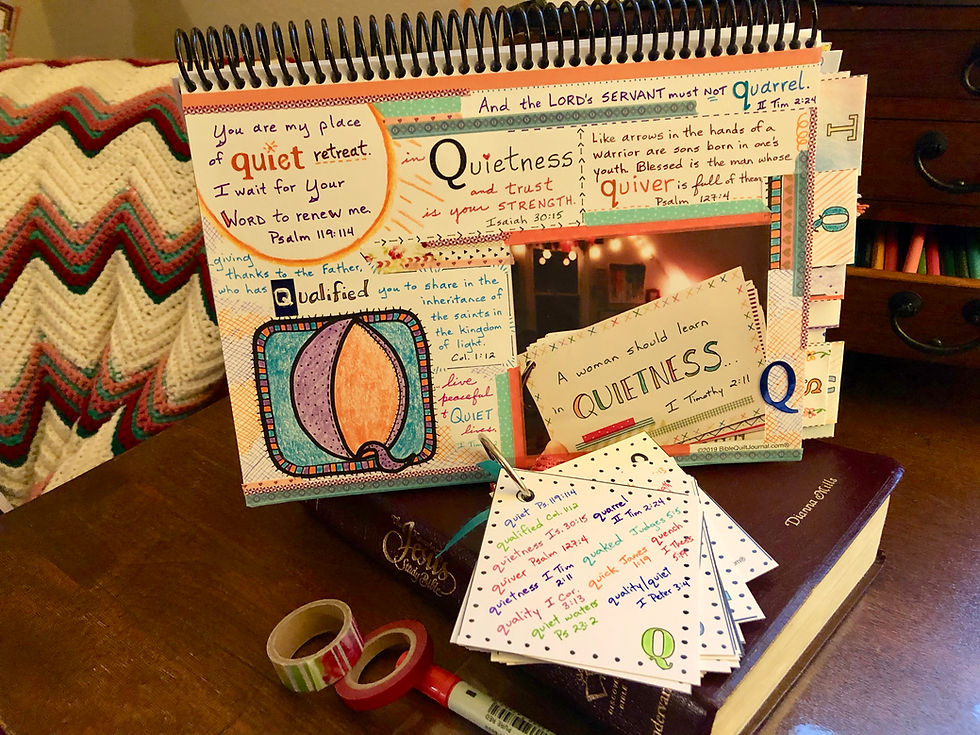 And the LORD's SERVANT must NOT quarrel.
II Tim 2:24
You are my place
of quiet retreat.
I wait for your
WORD to renew me.
Psalm 119:114
in Quietness
and trust
is your STRENGTH.
Isaiah 30:15
Like arrows in the hands of a
warrior are sons born in one's
youth. Blessed is the man whose
quiver is full of them.
Psalm 127:4
giving
thanks to the Father,
who has Qualified you to share in the
inheritance of
the saints in
the kingdom
of light.
Col. 1:12
Q
live
peaceful
+ QUIET
lives.
A woman should learn
in QUIETNESS...
I Timothy 2:11
Q
©2019 BibleQuiltJournal.com®
I
Q
S
quiet Ps. 119:114
qualified Col. 1:12
quietness Is. 30:15
quiver Psalm 127:4
quietness I Tim
2:11
quality I Cor.
3:13
quiet waters
Ps 23:2
quarrel
II Tim 2:24
quaked Judges 5:5
quick James
1:19
quench
I Thess
5:19
quality/quiet
I Peter 3:4
Q
Jesus
Study Bible
Dianna Mills